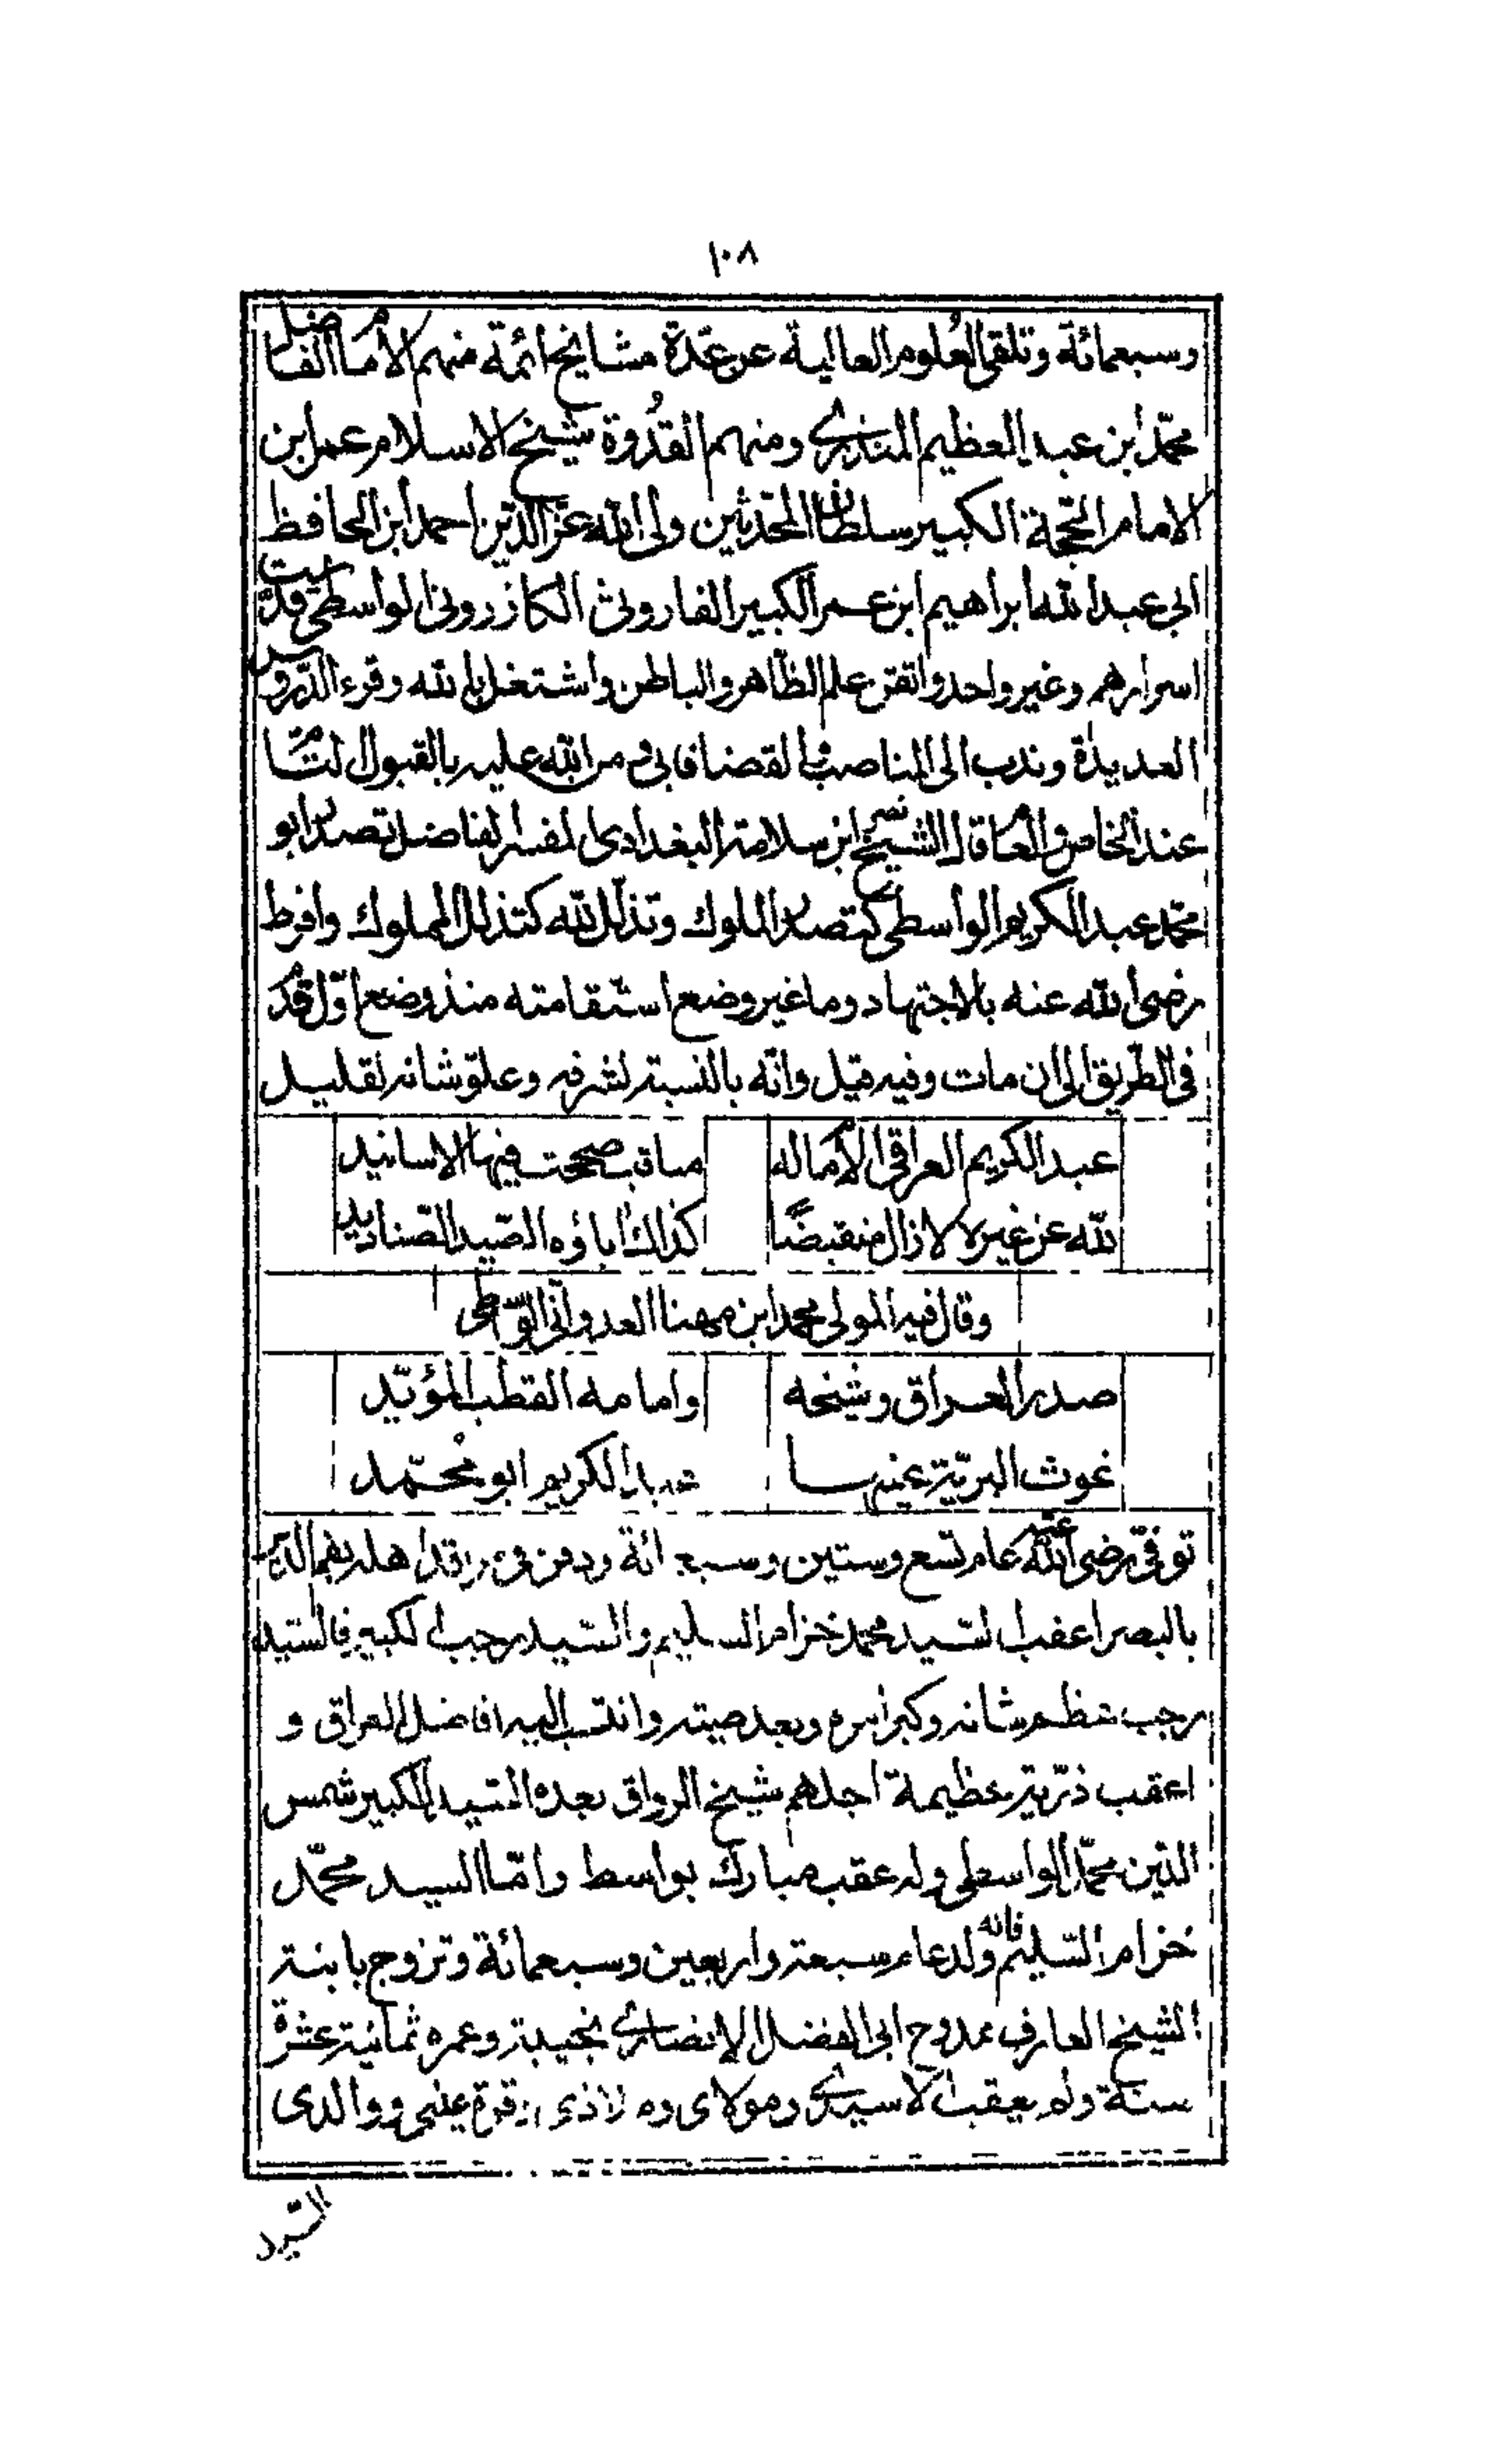 ١٠٨
وسبعمائة وتلقى العلوم العالية عن عدة مشايخ ائمة منهم الامام الفاضل
محمد ابن عبد العظيم المنذري ومنهم القدوة شيخ الاسلام عمر ابن
الامام الحجة الكبير سلطان المحدثين ولي الله عز الدين احمد ابن الحافظ
ابي عبد الله ابراهيم ابن عمر الكبير الفاروثي الكازروني الواسطي قدست
اسرارهم وغير واحد واتقن علم الظاهر والباطن واشتغل بالله وقرء الدروس
العديدة وندب الى المناصب والقضا فابى ومن الله عليه بالقبول التام
عند الخاص والعام قال الشيخ نصر ابن سلامة البغدادي المفسر الفاضل تصدر ابو
محمد عبد الكريم الواسطي كتصدر الملوك وتذلل لله كتذلل المملوك وافرط
رضي الله عنه بالاجتهاد وما غير وضع استقامته منذ وضع اول قدم
في الطريق الى ان مات وفيه قيل وانه بالنسبة لشرفه وعلو شانه لقليل
عبد الكريم العراقي الامام له مناقب صححت فيها الاسانيد
لله عن غيره لا زال منقبضًا كذاك اباؤه الصيد الصناديد
وقال فيه المولى محمد ابن مهنا العدواني القوطي
صدر العراق وشيخه وامامه القطب المؤيد
غوث البرية عينها عبد الكريم ابو محمد
توفي رضي الله عنه عام تسع وستين وسبعمائة ودفن في مرقد اهله بفم الدير
بالبصرة اعقب السيد محمد خزام السليم والسيد رجب الكبير فالسيد
رجب عظم شانه وكبر امره وبعد صيته وانتسب اليه افاضل العراق و
اعقب ذرية عظيمة اجلهم شيخ الرواق بعده السيد الكبير شمس
الدين محمد الواسطي وله عقب مبارك بواسط واما السيد محمد
خزام السليم فانه ولد عام سبعة واربعين وسبعمائة وتزوج بابنة
الشيخ العارف ممدوح ابي الفضل الانصاري نجيبة وعمره ثمانية عشرة
سنة ولم يعقب الا سيدي ومولاي وملاذي وقرة عيني ووالدي
السيد